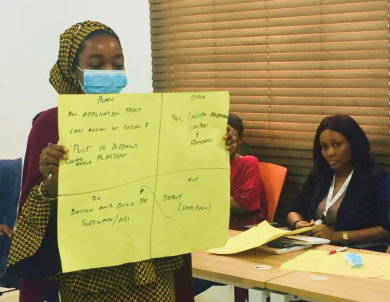 PLAN
AN APPLICATION THAT
CAN ALLOW US DESIGN &
POST TO DIFFERENT
SOCIAL MEDIA PLATFORM
CHECK
YES,
CONTENT
&
DO
DESIGN AND BUILD THE
SOFTWARE/ADS
ACT
DEPLOY
(FEEDBACK)